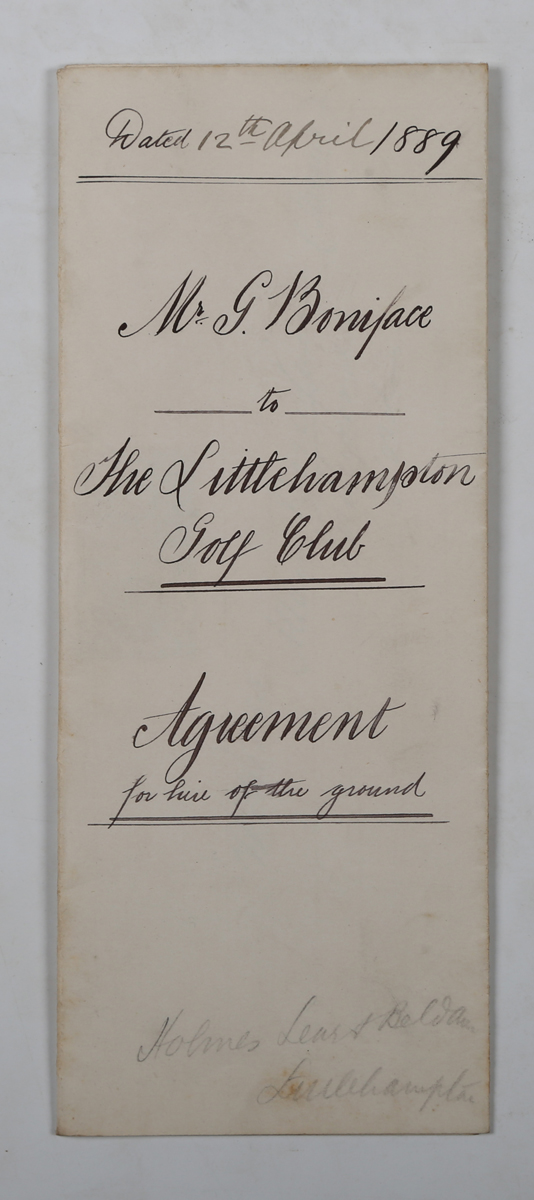 Dated 12th April 1889
Mr. G. Boniface
to
The Littlehampton
Golf Club
Agreement
for hire of the ground
Holmes Lear & Beldam
Littlehampton